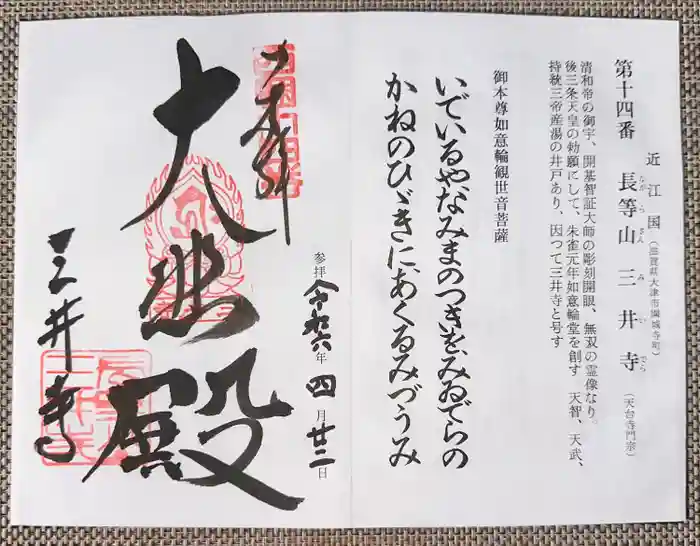 第十四番
近江国(滋賀県大津市園城寺町)
長等山 三井寺(天台寺門宗)
ながらさん みいでら
清和帝の御宇、開基智証大師の彫刻開眼、無双の霊像なり。
後三条天皇の勅願にして、朱雀元年如意輪堂を創す 天智、天武、
持統三帝産湯の井戸あり、因つて三井寺と号す
御本尊如意輪観世音菩薩
いでいるやなみまのつきをみゐでらの
かねのひゞきにあくるみづうみ
参拝 令和六年 四月 廿二日
奉拝
大悲殿
三井寺